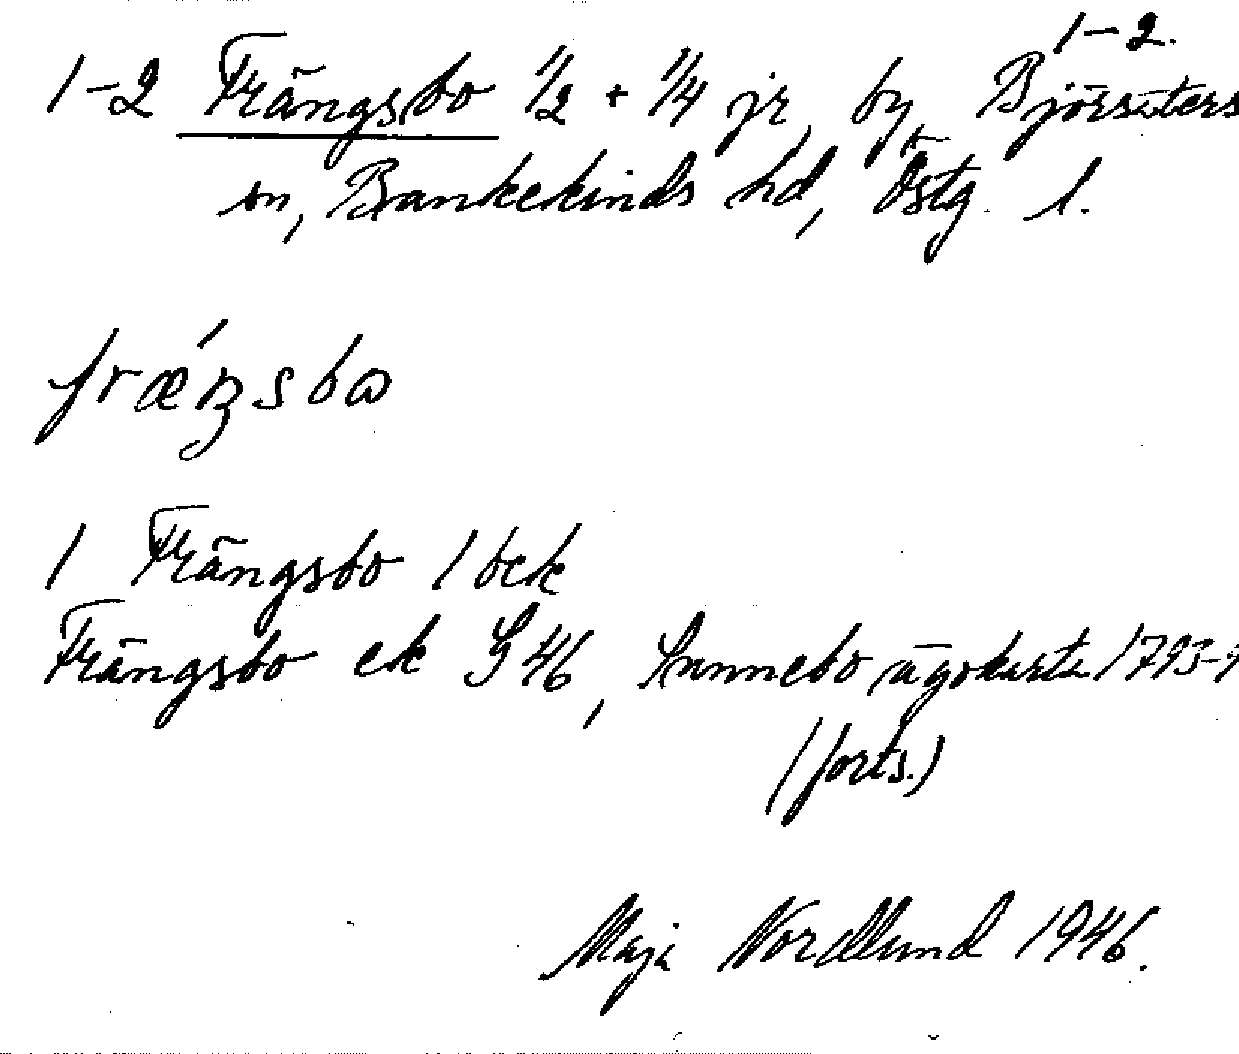 1-2.
1-2 Frängsbo 1/2 + 1/4 jr, by, Björsäters
sn, Bankekinds hd, Östg. l.
fræŋsbω
1 Frängsbo 1 bek
Frängsbo ek G 46, Sunnebo ägokarta 1793-9
(forts.)
Maja Nordlund 1946.